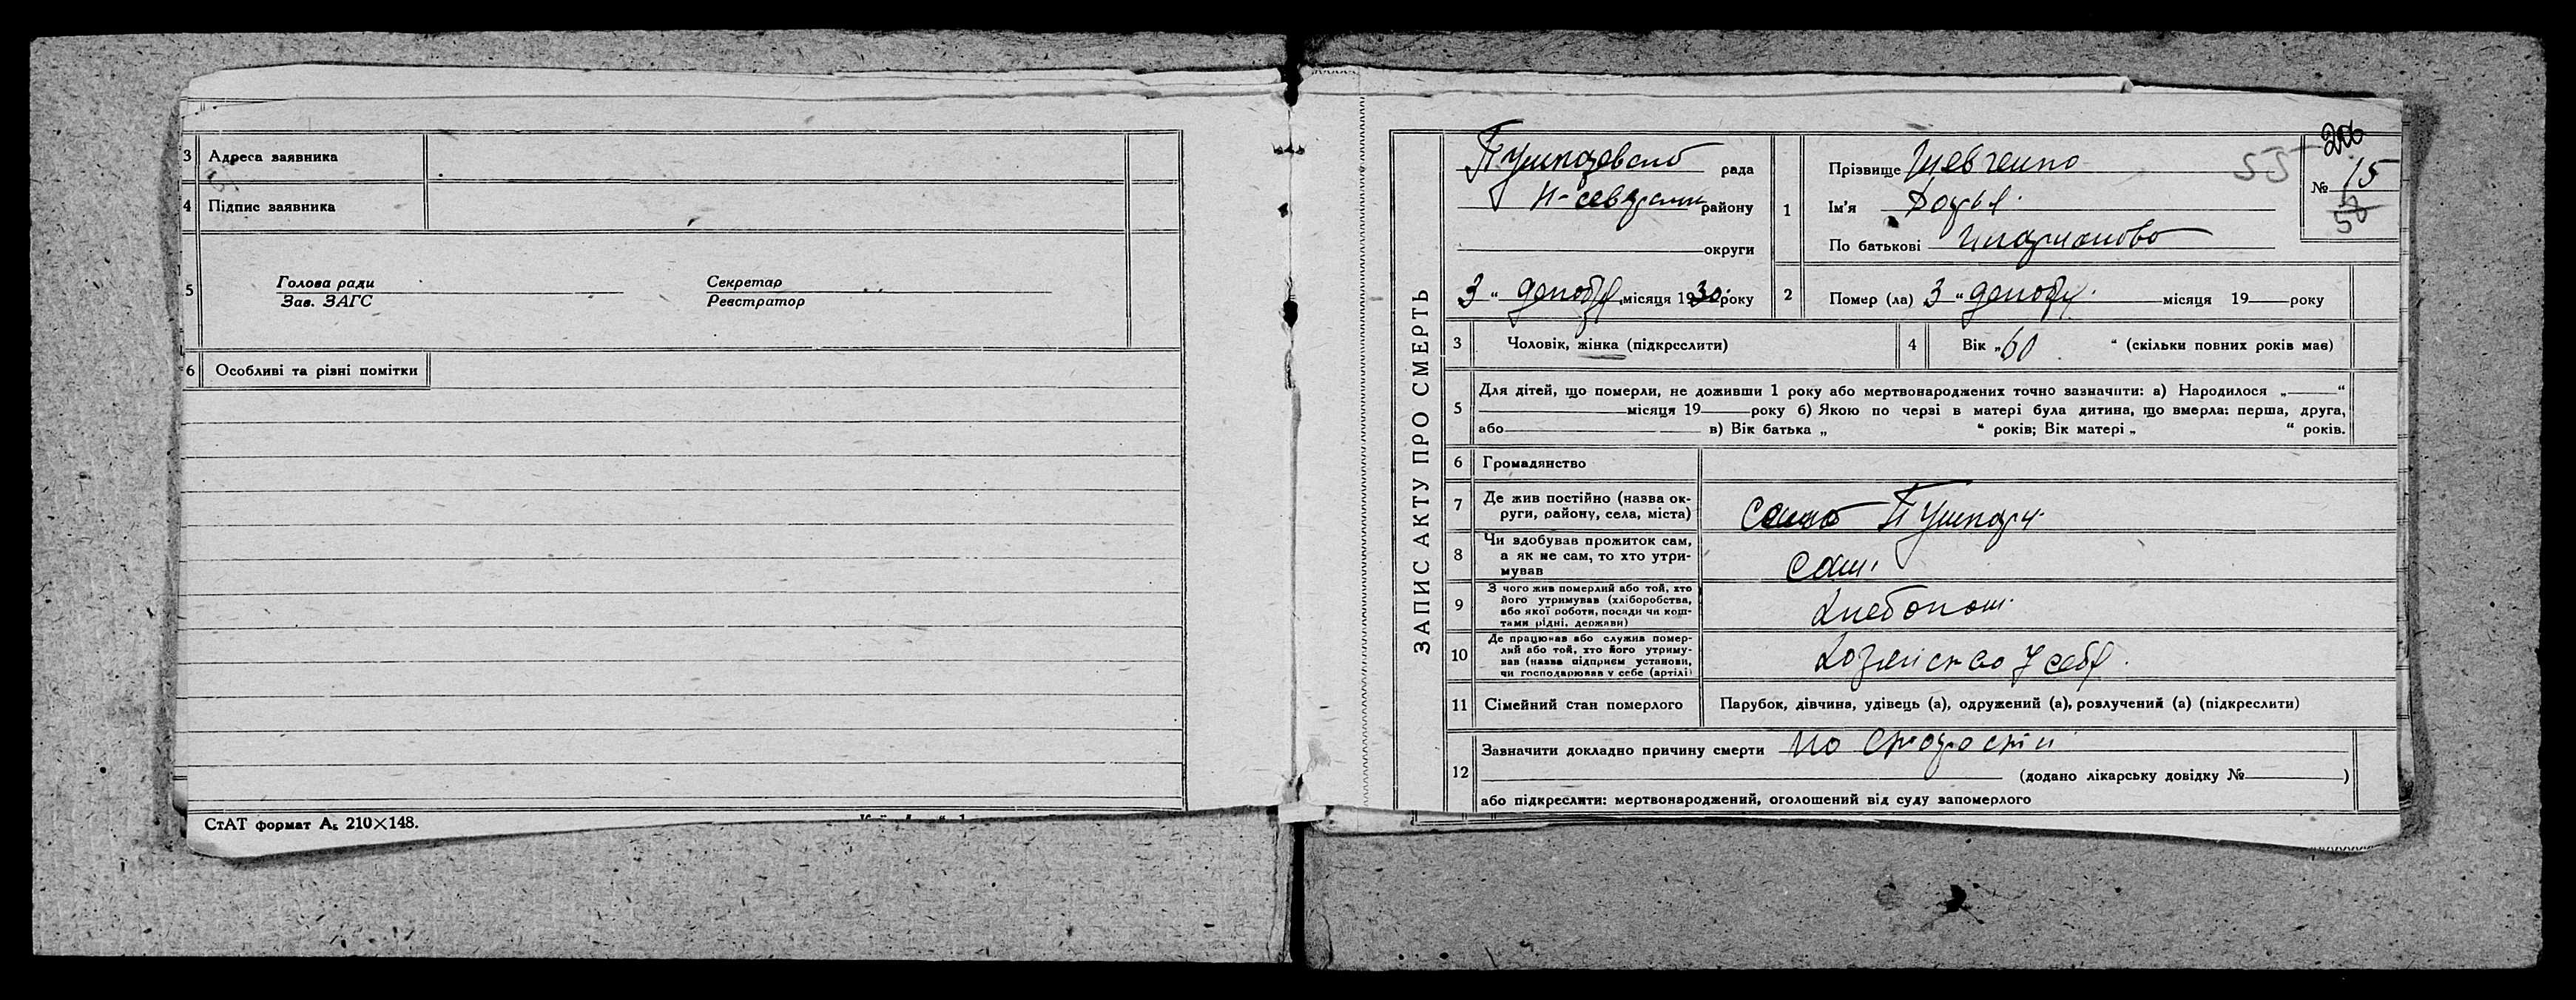 3 Адреса заявника
4 Підпис заявника
5 Голова ради Секретар
Зав. ЗАГС Реєстратор
6 Особливі та різні помітки
СтАТ формат А₅ 210×148.
ЗАПИС АКТУ ПРО СМЕРТЬ
рада
Н-северский району
округи
3 " декабря місяця 1930 року
1 Прізвище Шевченко 55
Ім'я Дарья
По батькові
206
№ 15
50
2 Помер (ла) 3 " декабря місяця 19 року
3 Чоловік, жінка (підкреслити)
4 Вік „60 " (скільки повних років має)
5 Для дітей, що померли, не доживши 1 року або мертвонароджених точно зазначити: а) Народилося „ "
місяця 19 року б) Якою по черзі в матері була дитина, що вмерла: перша, друга,
або в) Вік батька „ " років; Вік матері „ " років.
6 Громадянство
7 Де жив постійно (назва ок-
руги, району, села, міста) Пушкари
8 Чи здобував прожиток сам,
а як не сам, то хто утри-
мував сам
9 З чого жив померлий або той, хто
його утримував (хліборобства,
або якої роботи, посади чи кош-
тами рідні, держави) хлебопаш.
10 Де працював або служив помер-
лий або той, хто його утриму-
вав (назва підприєм установи,
чи господарював у себе (артілі) хозяйство у себя
11 Сімейний стан померлого Парубок, дівчина, удівець (а), одружений (а), розлучений (а) (підкреслити)
12 Зазначити докладно причину смерти по старости
(додано лікарську довідку № )
або підкреслити: мертвонароджений, оголошений від суду запомерлого